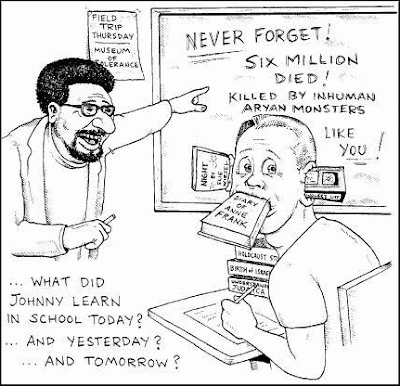 FIELD
TRIP
THURSDAY
MUSEUM
OF
TOLERANCE
NEVER FORGET!
SIX MILLION
DIED!
KILLED BY INHUMAN
ARYAN MONSTERS
LIKE
YOU!
NIGHT
BY
ELIE
DIARY
OF
ANNE
FRANK
HOLOCAUST ST
BIRTH OF ISRAEL
JUDAICA
... WHAT DID
JOHNNY LEARN
IN SCHOOL TODAY?
... AND YESTERDAY?
... AND TOMORROW?